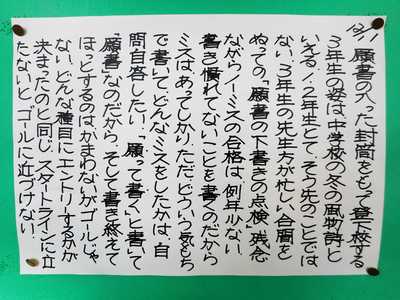 12/1
願書の入った封筒をもって登下校する
3年生の姿は、中学校の冬の風物詩と
いえる!1、2年生とて、そう先のことでは
ない。3年生の先生方が忙しい合間を
ぬっての「願書の下書きの点検」残念
ながらノーミスの合格は例年少ない。
書き慣れてないことを書くのだから
ミスは、あってしかり。ただどういう気もち
で書いて、どんなミスをしたかは、自
問自答したい。「願って書く」と書いて
「願書」なのだから。そして書き終えて
ほっとするのはかまわないがゴールじゃ
ない。どんな種目にエントリーするかが
決まったのと同じ。スタートラインに立
たないと、ゴールに近づけない。